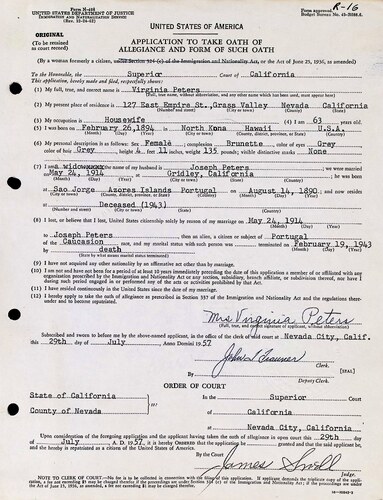 R-16
Form N-408
UNITED STATES DEPARTMENT OF JUSTICE
IMMIGRATION AND NATURALIZATION SERVICE
Form approved
ORIGINAL
(To be retained
as court record)
UNITED STATES OF AMERICA
APPLICATION TO TAKE OATH OF
ALLEGIANCE AND FORM OF SUCH OATH
(By a woman formerly a citizen, of the Immigration and Nationality Act, or the Act of June 25, 1936, as amended)
To the Honorable, the Superior Court of California
This application, hereby made and filed, respectfully shows:
(1) My full, true, and correct name is Virginia Peters
(2) My present place of residence is 127 East Empire St., Grass Valley Nevada California
(3) My occupation is Housewife (4) I am 63 years old.
(5) I was born on February 26, 1894 in North Kona Hawaii U.S.A.
(6) My personal description is as follows: Sex Female, complexion Brunette, color of eyes Grey
color of hair Grey, height 4 feet 11 inches, weight 135 pounds; visible distinctive marks None
(7) I am widow; the name of my husband is Joseph Peters; we were married
on May 24, 1914 at Gridley, California; he was born
at Sao Jorge Azores Islands Portugal on August 14, 1890; and now resides
at Deceased (1943)
(8) I lost, or believe that I lost, United States citizenship solely by reason of my marriage on May 24, 1914
to Joseph Peters then an alien, a citizen or subject of Portugal
of the Caucasion race, and my marital status with such person was terminated on February 19, 1943
by death
(State by what means marital status terminated)
(9) I have not acquired any other nationality by an affirmative act other than by marriage.
(10) I am not and have not been for a period of at least 10 years immediately preceding the date of this application a member of or affiliated with any
organization proscribed by the Immigration and Nationality Act or any section, subsidiary, branch, affiliate, or subdivision thereof, nor have I
during such period engaged in or performed any of the acts or activities prohibited by that Act.
(11) I have resided continuously in the United States since the date of my marriage.
(12) I hereby apply to take the oath of allegiance as prescribed in Section 337 of the Immigration and Nationality Act and the regulations there-
under and to become repatriated.
Mrs Virginia Peters
(Full, true, and correct signature of applicant, without abbreviation)
Subscribed and sworn to before me by the above-named applicant, in the office of the clerk of said court at Nevada City, Calif.
this 29th day of July Anno Domini 1957
Clerk.
By
Deputy Clerk.
ORDER OF COURT
State of California
County of Nevada
In the Superior Court
of California
at Nevada City, California
Upon consideration of the foregoing application and the applicant having taken the oath of allegiance in open court this 29th day
of July, A. D. 1957, it is hereby ORDERED the application be granted and that the said applicant be,
and she hereby is repatriated as a citizen of the United States of America.
James Snell
Judge.
NOTE TO CLERK OF COURT: